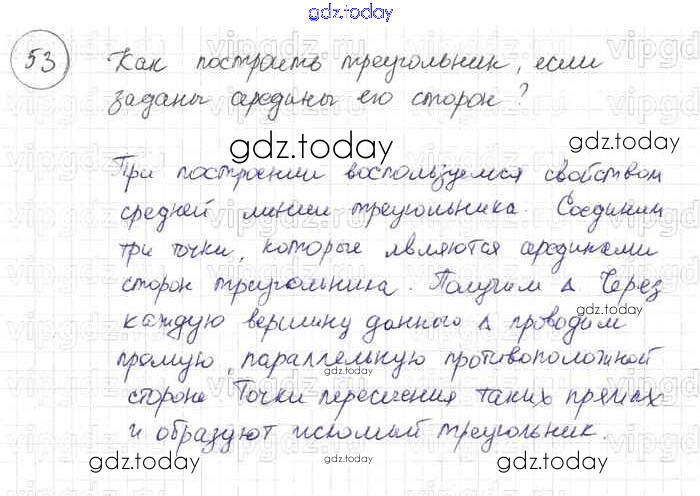 gdz.today
53 Как построить треугольник, если
заданы средины его сторон?
gdz.today
gdz.today
При построении воспользуемся свойством
средней линии треугольника. Соединим
три точки, которые являются срединами
сторон треугольника. Получим △. Через
gdz.today
каждую вершину данного △ проводим
прямую, параллельную противоположной
gdz.today
стороне. Точки пересечения таких прямых
и образуют искомый треугольник.
gdz.today
gdz.today
gdz.today